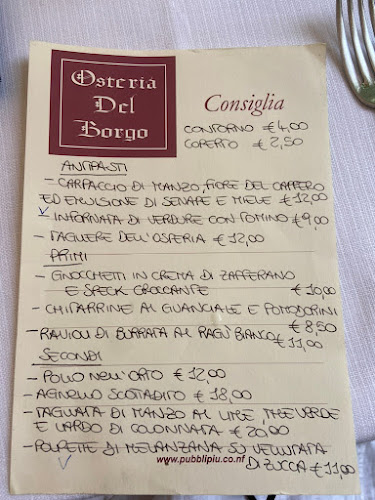 Osteria
Del
Borgo
Consiglia
CONTORNO €4,00
COPERTO €2,50
ANTIPASTI
- CARPACCIO DI MANZO, FIORE DEL CAPPERO
ED EMULSIONE DI SENAPE E MIELE €12,00
INFORNATA DI VERDURE CON TOMINO €9,00
- TAGLIERE DELL'OSTERIA €12,00
PRIMI
- GNOCCHETTI IN CREMA DI ZAFFERANO
E SPECK CROCCANTE €10,00
- CHITARRINE AL GUANCIALE E POMODORINI
€8,50
- RAVIOLI DI BURRATA AL RAGÙ BIANCO €11,00
SECONDI
- POLLO NELL'ORTO €12,00
- AGNELLO SCOTTADITO €18,00
- TAGLIATA DI MANZO AL LIME, THE VERDE
E LARDO DI COLONNATA €20,00
- POLPETTE DI MELANZANA SU VELLUTATA
DI ZUCCA €11,00
www.pubblipiu.co.nf